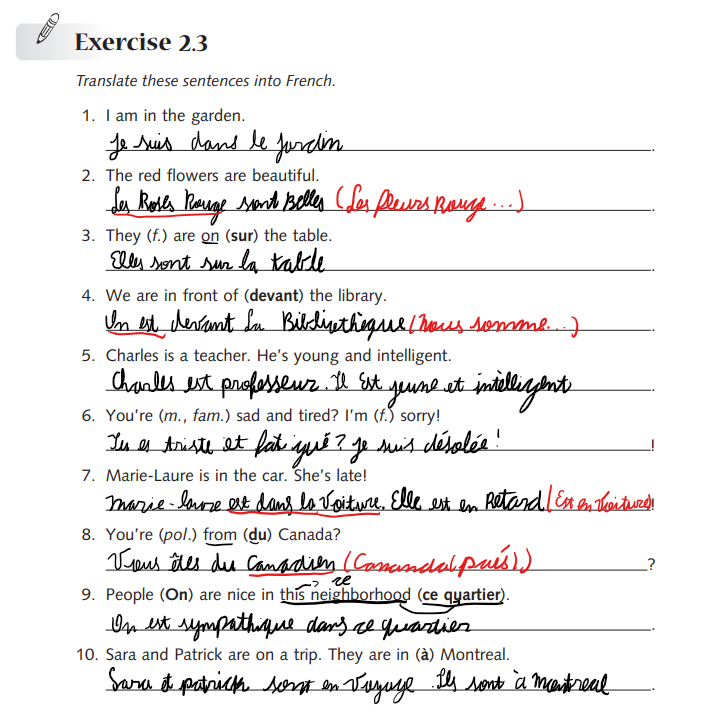 Exercise 2.3
Translate these sentences into French.
1. I am in the garden.
Je suis dans le jardin
2. The red flowers are beautiful.
Les Roses Rouge sont Belles (Les fleurs Rouge...)
3. They (f.) are on (sur) the table.
Elles sont sur la table
4. We are in front of (devant) the library.
On est devant La Bibliothèque (nous somme...)
5. Charles is a teacher. He's young and intelligent.
Charles est professeur. Il Est jeune et intèlligent
6. You're (m., fam.) sad and tired? I'm (f.) sorry!
Tu es triste et fatigué? Je suis désolée!
7. Marie-Laure is in the car. She's late!
marie-laure est dans la Voiture. Elle est en Retard (Est en Voiture)!
8. You're (pol.) from (du) Canada?
Vous êtes du Canadien (Cananda(país).)?
ce
9. People (On) are nice in this neighborhood (ce quartier).
On est sympathique dans ce quartier
10. Sara and Patrick are on a trip. They are in (à) Montreal.
Sara et patrick sont en Voyage. Ils sont à montreal